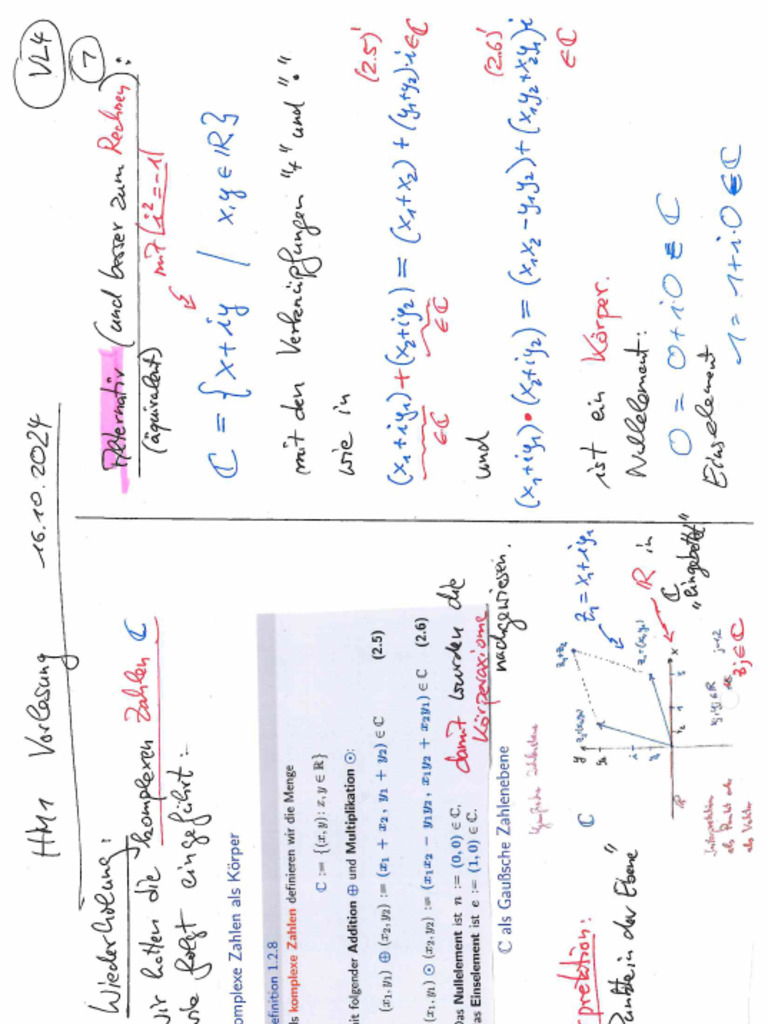 HM1 Vorlesung 16.10.2024
VL4
1
Wiederholung:
wir hatten die komplexen Zahlen ℂ
wie folgt eingeführt:
omplexe Zahlen als Körper
efinition 1.2.8
ls komplexe Zahlen definieren wir die Menge
ℂ := {(x, y) : x, y ∈ ℝ}
it folgender Addition ⊕ und Multiplikation ⊙:
(x₁, y₁) ⊕ (x₂, y₂) := (x₁ + x₂, y₁ + y₂) ∈ ℂ (2.5)
(x₁, y₁) ⊙ (x₂, y₂) := (x₁x₂ − y₁y₂, x₁y₂ + x₂y₁) ∈ ℂ (2.6)
Das Nullelement ist n := (0, 0) ∈ ℂ,
as Einselement ist e := (1, 0) ∈ ℂ.
damit wurden die
Körperaxiome
nachgewiesen.
ℂ als Gaußsche Zahlenebene
ℂ
z₁ = x₁ + iy₁
z₁+z₂
y
x
ℝ in
ℂ
"eingebettet"
j=1,2
zⱼ ∈ ℂ
Interpretation
als Punkt oder
als Vektor
pretation:
Punkte in der Ebene"
Alternativ (und besser zum Rechnen):
(äquivalent) mit i² = -1
ℂ = { x + iy / x, y ∈ ℝ }
mit den Verknüpfungen "+" und "•"
wie in (2.5)'
(x₁ + iy₁) + (x₂ + iy₂) = (x₁ + x₂) + (y₁ + y₂)·i ∈ ℂ
∈ ℂ ∈ ℂ
und (2.6)'
(x₁ + iy₁) • (x₂ + iy₂) = (x₁x₂ - y₁y₂) + (x₁y₂ + x₂y₁)i
∈ ℂ
ist ein Körper.
Nullelement:
0 = 0 + i·0 ∈ ℂ
Einselement
1 = 1 + i·0 ∈ ℂ